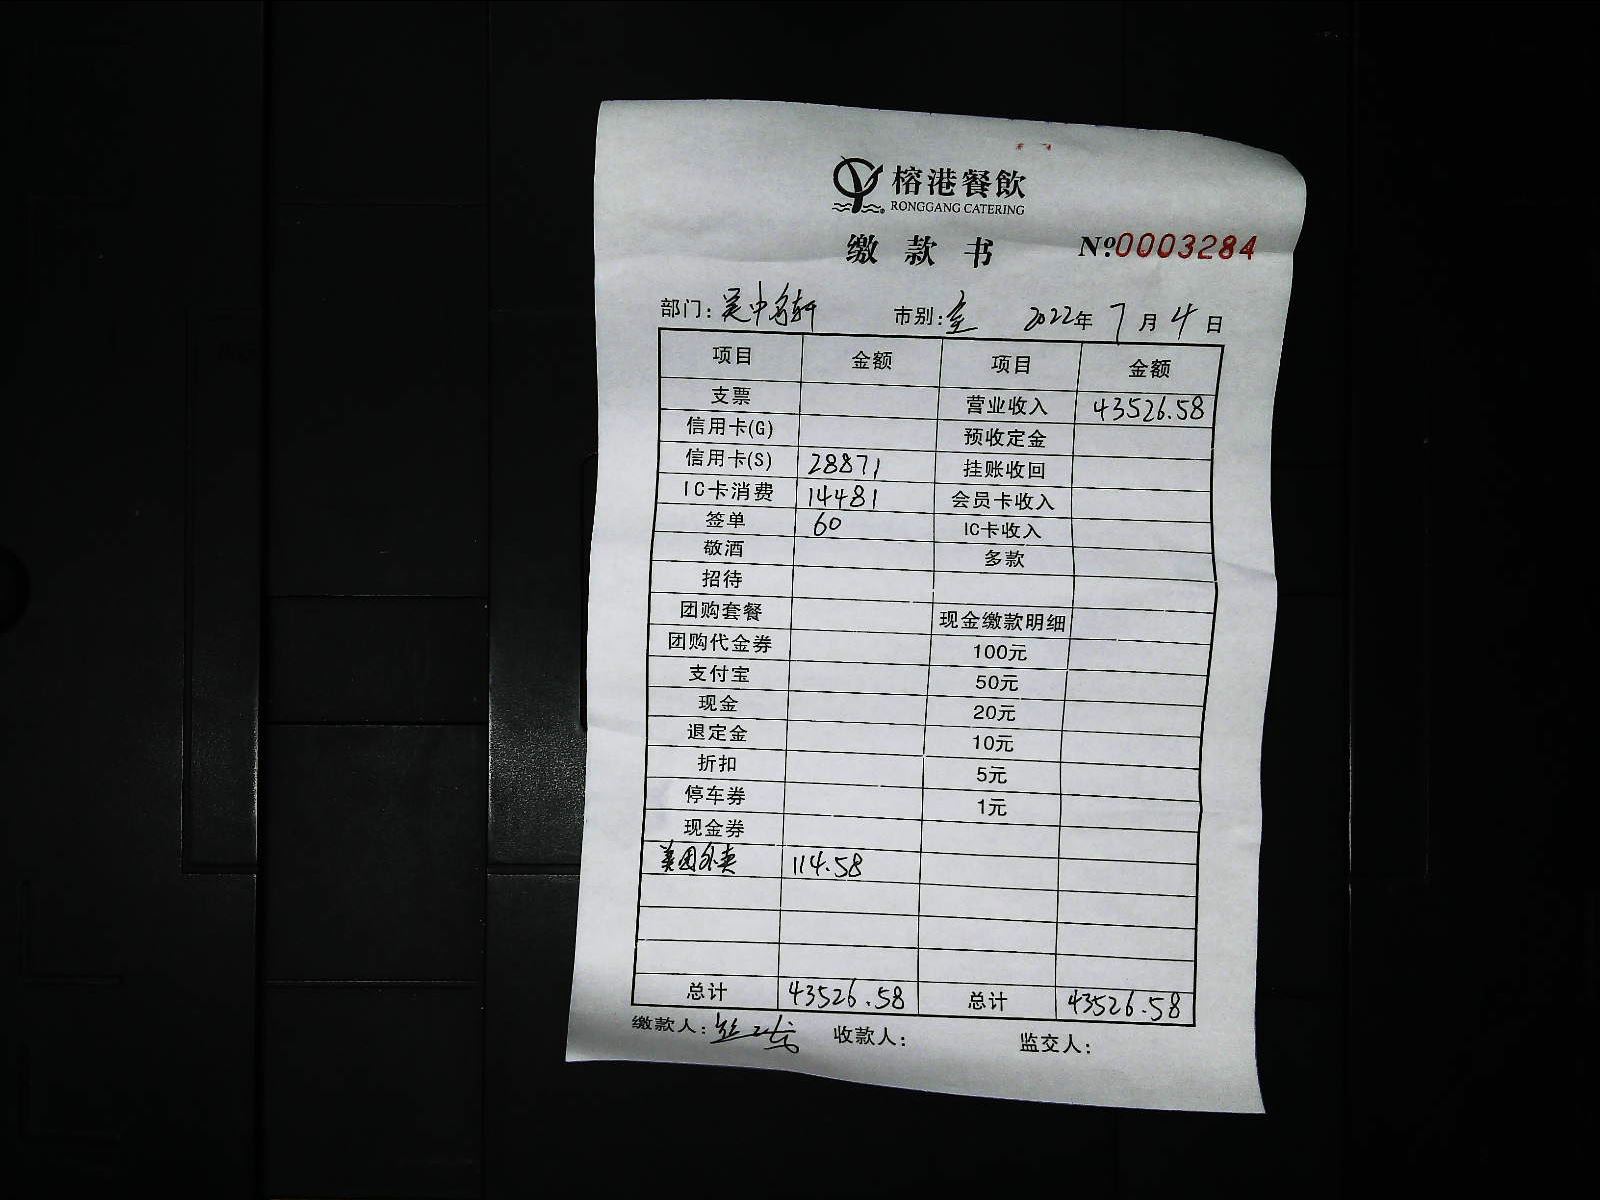 榕港餐飲
RONGGANG CATERING
缴款书 №.0003284
部门: 吴中名轩 市别: 2022年7月4日
项目 金额 项目 金额
支票 营业收入 43526.58
信用卡(G) 预收定金
信用卡(S) 28871 挂账收回
IC卡消费 14481 会员卡收入
签单 60 IC卡收入
敬酒 多款
招待
团购套餐 现金缴款明细
团购代金券 100元
支付宝 50元
现金 20元
退定金 10元
折扣 5元
停车券 1元
现金券
美团外卖 114.58
总计 43526.58 总计 43526.58
缴款人: 收款人: 监交人: